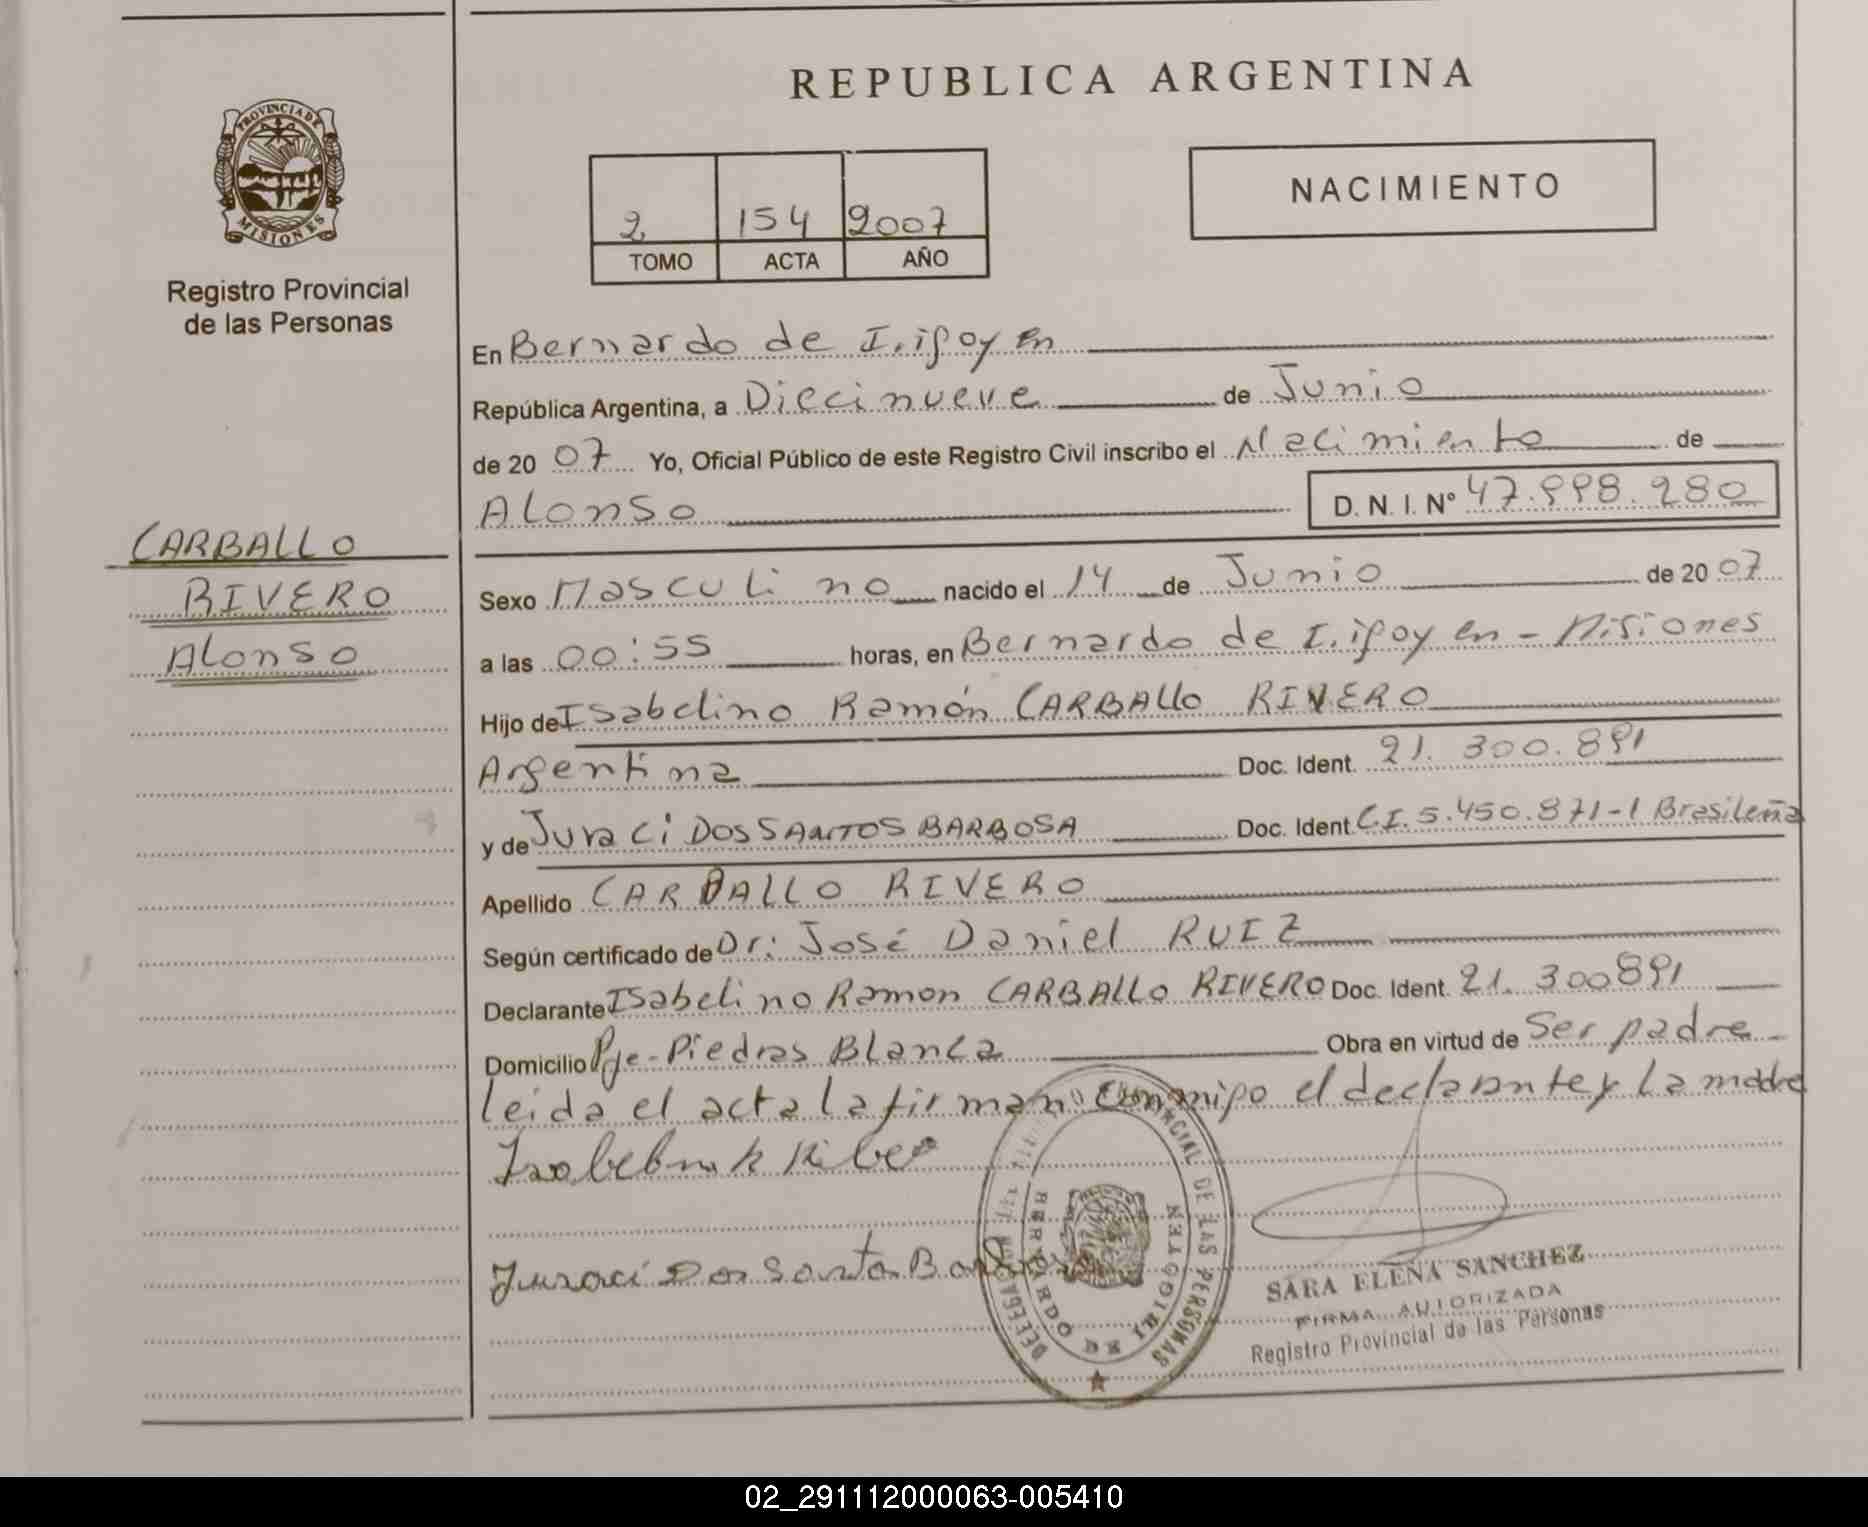 REPUBLICA ARGENTINA
PROVINCIA DE
MISIONES
Registro Provincial
de las Personas
NACIMIENTO
2 154 2007
TOMO ACTA AÑO
En Bernardo de Irigoyen
República Argentina, a Diecinueve de Junio
de 20 07 Yo, Oficial Público de este Registro Civil inscribo el Nacimiento de
Alonso D. N. I. Nº 47.998.280
CARBALLO
RIVERO
Alonso
Sexo Masculino nacido el 14 de Junio de 20 07
a las 00:55 horas, en Bernardo de Irigoyen - Misiones
Hijo de Isabelino Ramón CARBALLO RIVERO
Argentina Doc. Ident. 21.300.891
y de Juraci DOS SANTOS BARBOSA Doc. Ident. C.I. 5.450.871-1 Brasileña
Apellido CARBALLO RIVERO
Según certificado de Dr: José Daniel RUIZ
Declarante Isabelino Ramon CARBALLO RIVERO Doc. Ident. 21.300891
Domicilio Pje- Piedras Blanca Obra en virtud de Ser padre
leida el acta la firman conmigo el declarante y la madre
Juraci Dos Santos Barbosa
DE LAS PERSONAS
BERNARDO DE IRIGOYEN
SARA ELENA SANCHEZ
FIRMA AUTORIZADA
Registro Provincial de las Personas
02_291112000063-005410